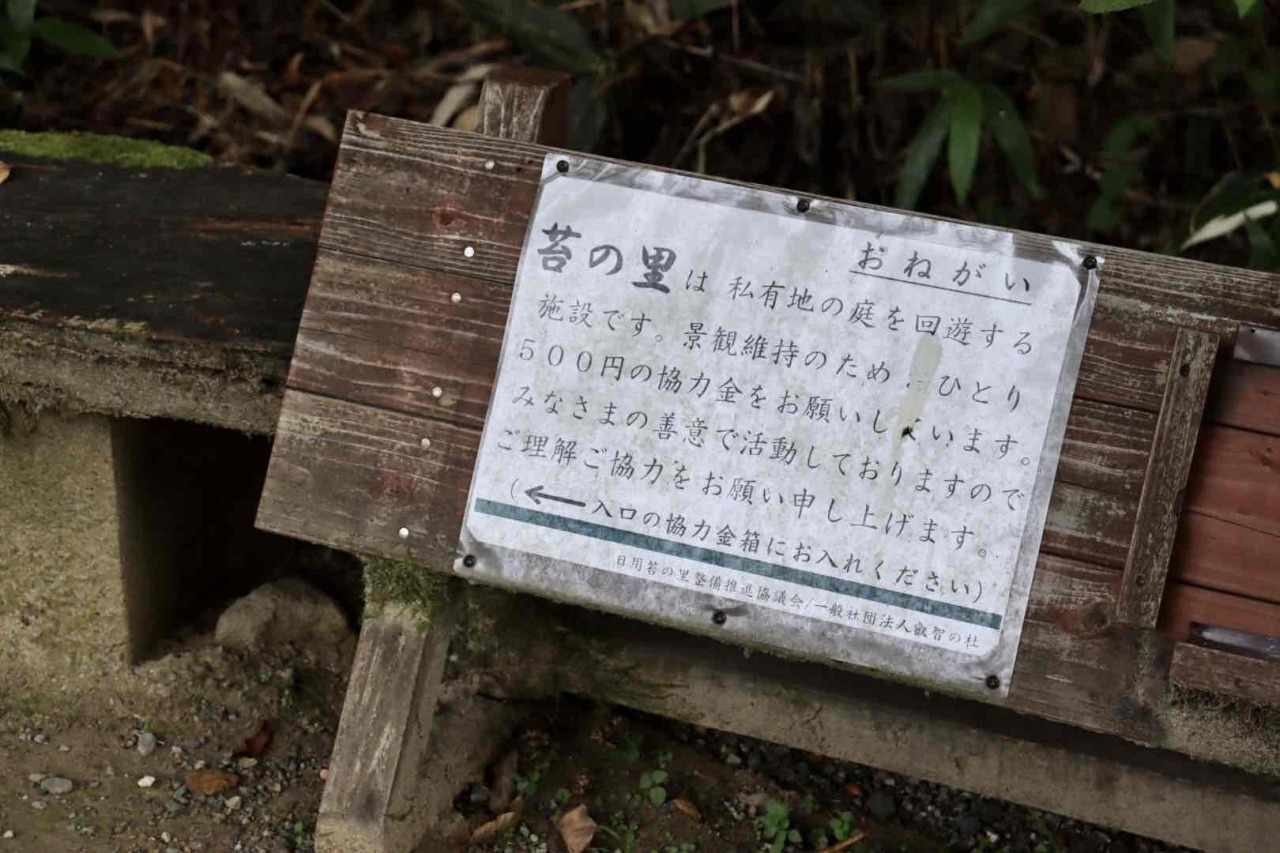 おねがい
苔の里は 私有地の庭を回遊する
施設です。景観維持のため ひとり
５００円の協力金をお願いしています。
みなさまの善意で活動しておりますので
ご理解ご協力をお願い申し上げます。
(←入口の協力金箱にお入れください)
日用苔の里整備推進協議会/一般社団法人叡智の杜